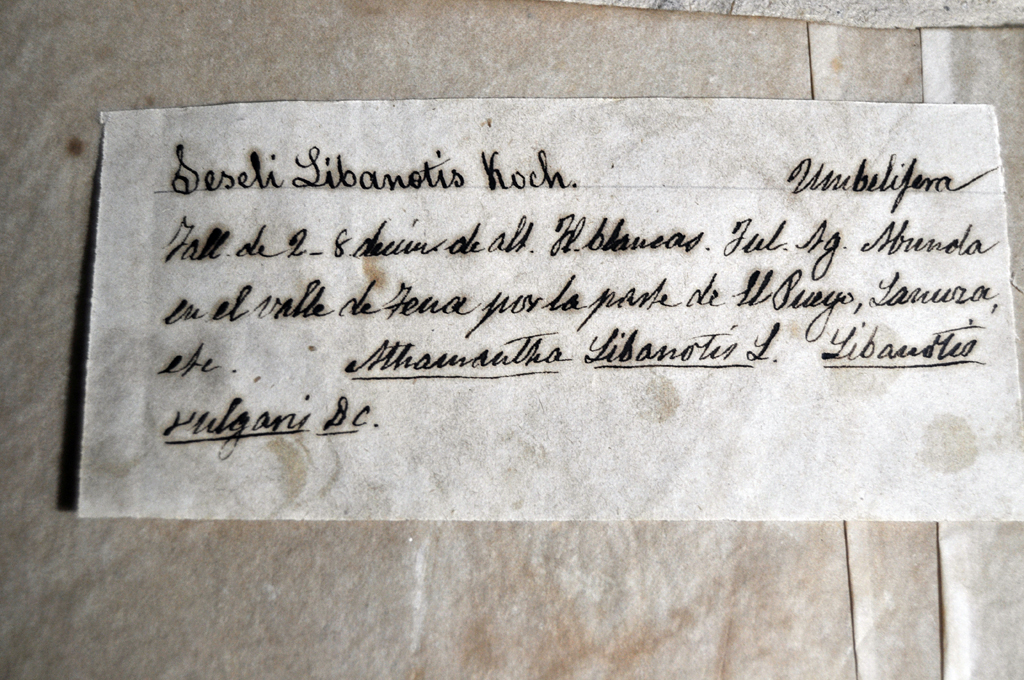 Seseli Libanotis Koch. Umbelifera
Tall. de 2-8 decím. de alt. Fl. blancas. Jul. Ag. Abunda
en el valle de Tena por la parte de El Pueyo, Lanuza,
etc. Athamantha Libanotis L. Libanotis
vulgaris DC.